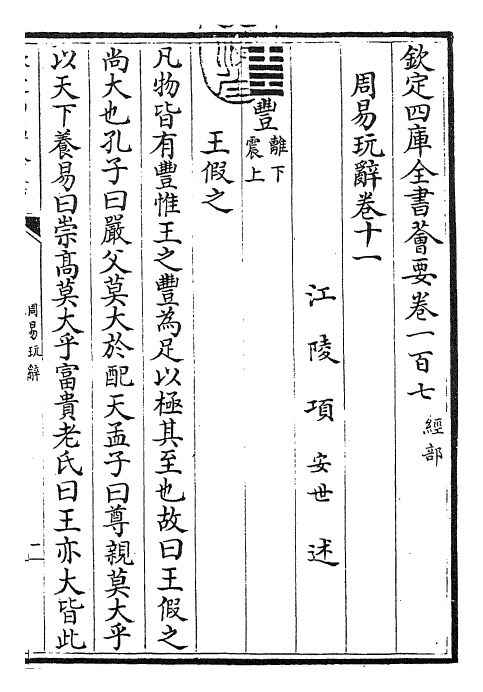 欽定四庫全書薈要卷一百七 經部
周易玩辭卷十一
江陵項安世述
豐 離下 震上
王假之
凡物皆有豐惟王之豐為足以極其至也故曰王假之
尚大也孔子曰嚴父莫大於配天孟子曰尊親莫大乎
以天下養易曰崇髙莫大乎富貴老氏曰王亦大皆此
周易玩辭